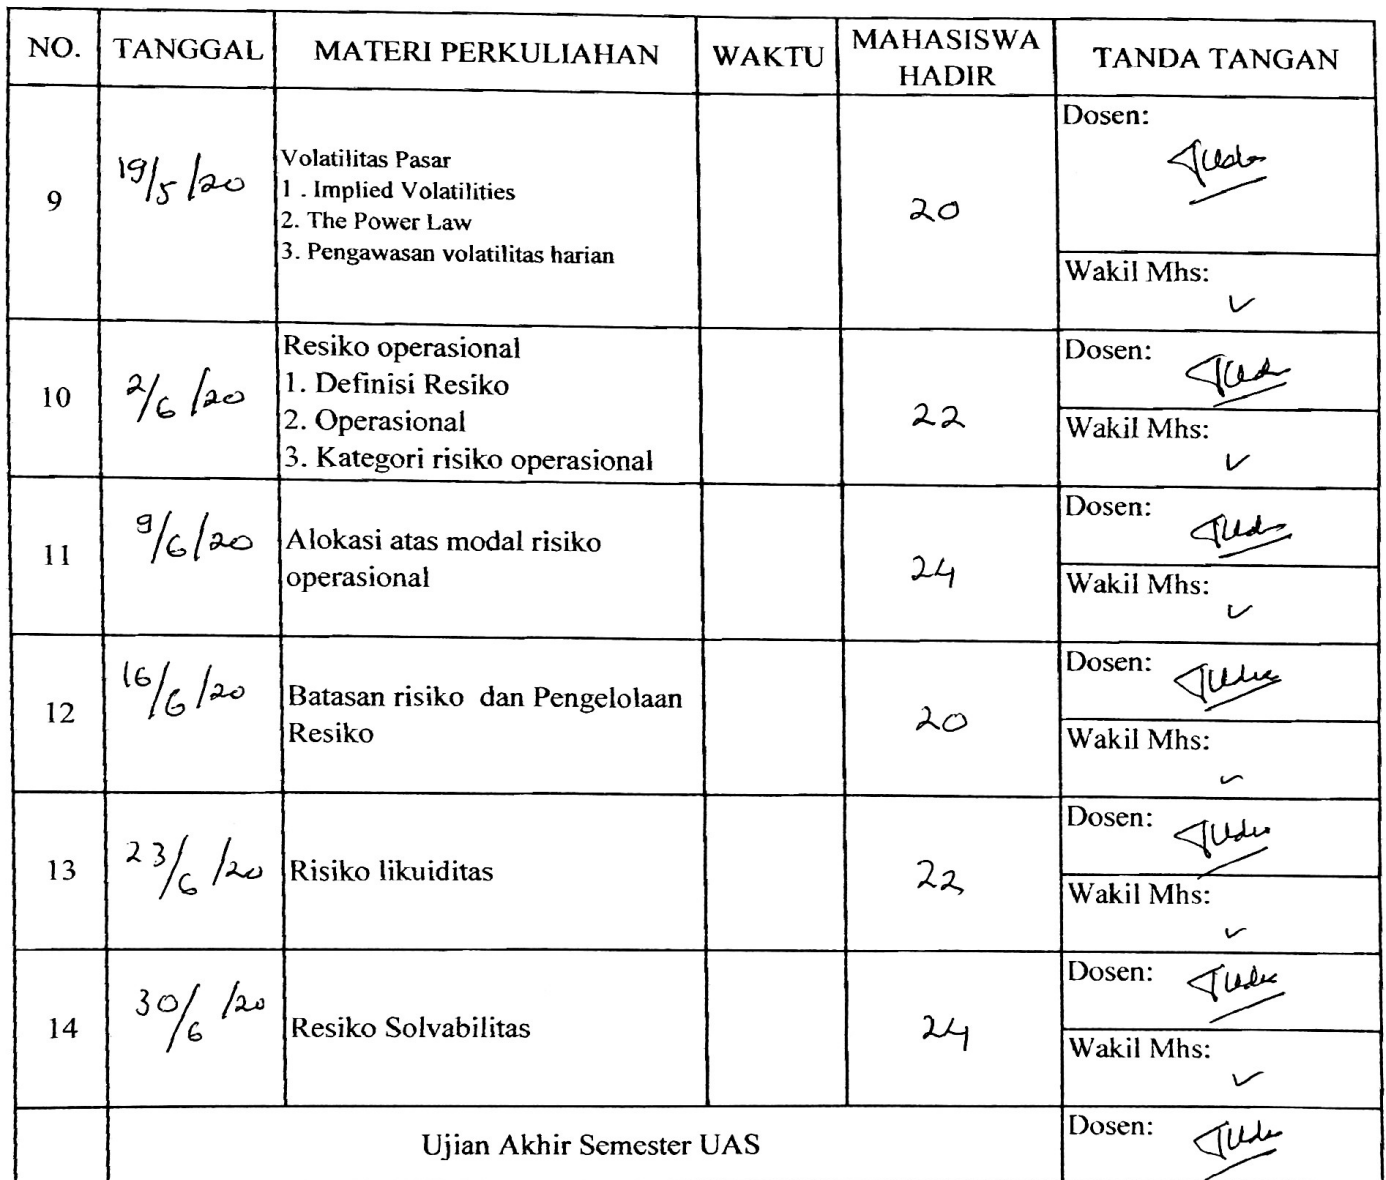 NO. TANGGAL MATERI PERKULIAHAN WAKTU MAHASISWA HADIR TANDA TANGAN
9
19/5/20
Volatilitas Pasar
1 . Implied Volatilities
2. The Power Law
3. Pengawasan volatilitas harian
20
Dosen:
Wakil Mhs:
10
2/6/20
Resiko operasional
1. Definisi Resiko
2. Operasional
3. Kategori risiko operasional
22
Dosen:
Wakil Mhs:
11
9/6/20
Alokasi atas modal risiko
operasional
24
Dosen:
Wakil Mhs:
12
16/6/20
Batasan risiko dan Pengelolaan
Resiko
20
Dosen:
Wakil Mhs:
13
23/6/20
Risiko likuiditas
22
Dosen:
Wakil Mhs:
14
30/6/20
Resiko Solvabilitas
24
Dosen:
Wakil Mhs:
Ujian Akhir Semester UAS
Dosen: